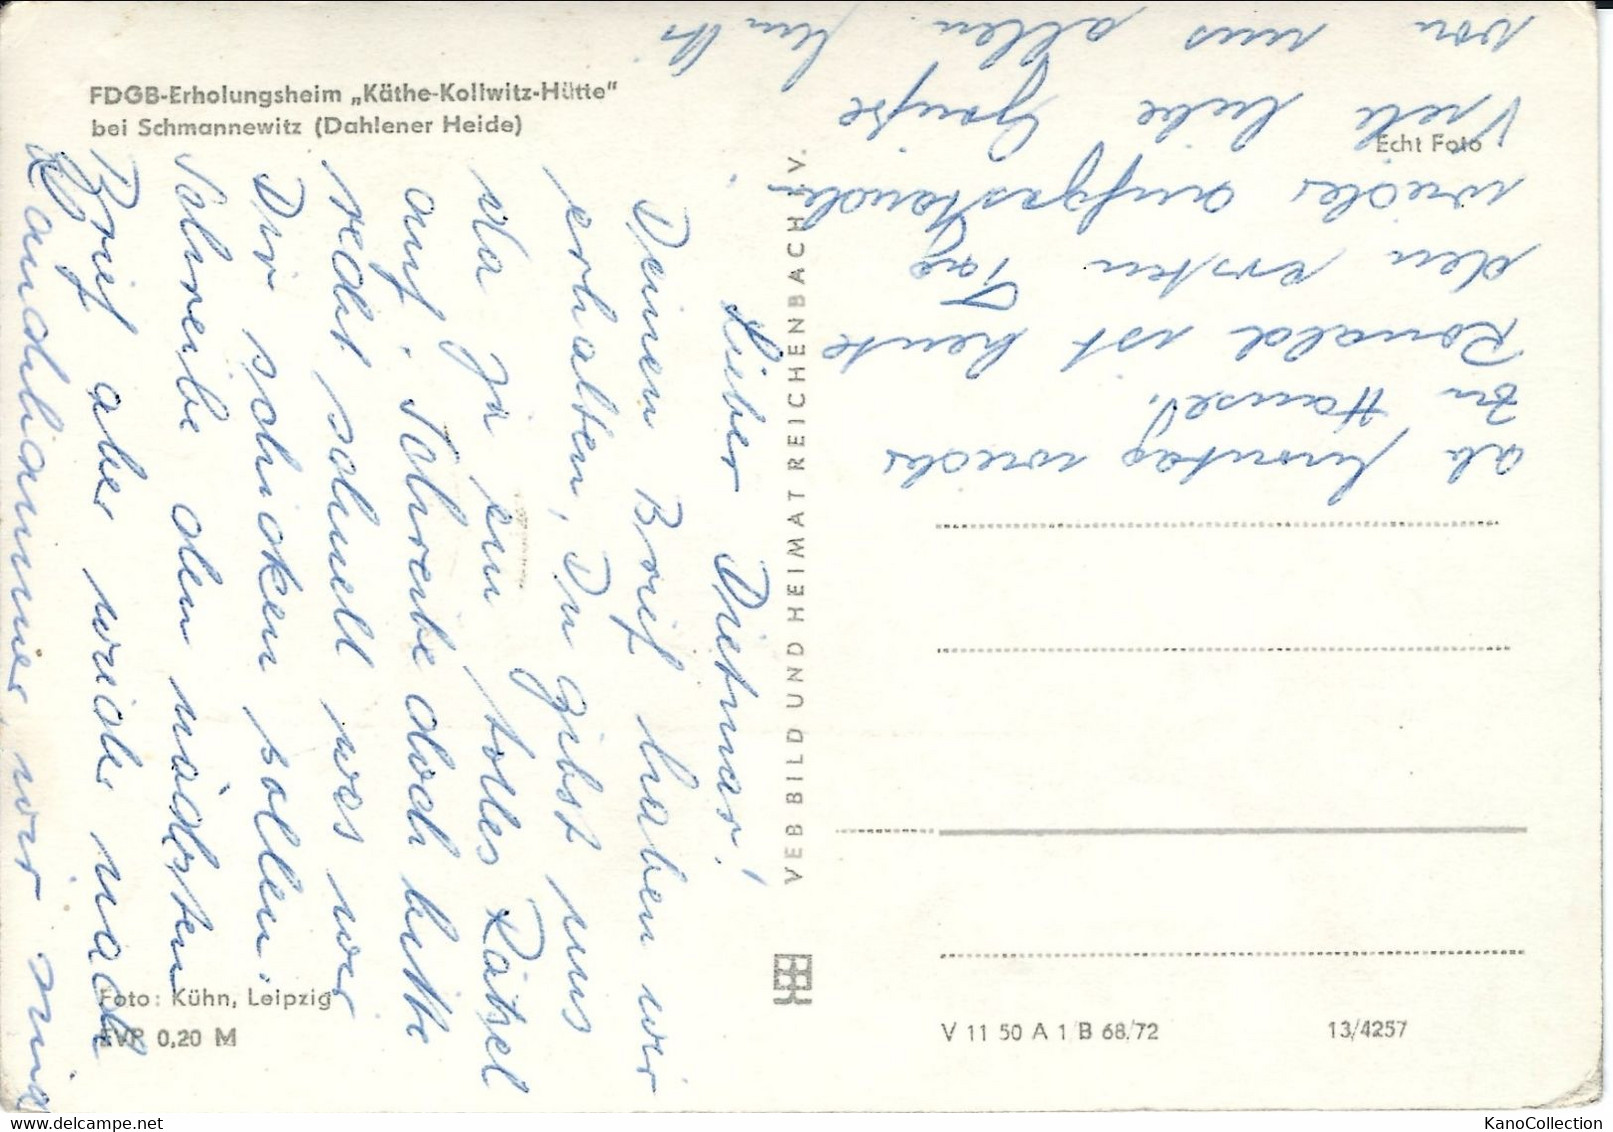 FDGB-Erholungsheim „Käthe-Kollwitz-Hütte"
bei Schmannewitz (Dahlener Heide)
Echt Foto
Lieber Dietmar!
Deinen Brief haben wir
erhalten, Du gibst uns
da ja ein tolles Rätsel
auf. Schreibe doch bitte
recht schnell was wir
Dir schicken sollen.
Schreibe den nächsten
Brief aber wieder nach
Kandlhammer, wir sind
ab Sonntag wieder
zu Hause!
Ronald ist heute
den ersten Tag
wieder aufgestanden.
Viele liebe Grüße
von uns allen
VEB BILD UND HEIMAT REICHENBACH i. V.
Foto: Kühn, Leipzig
EVP 0,20 M
V 11 50 A 1/B 68/72
13/4257
KanoCollection
delcampe.net